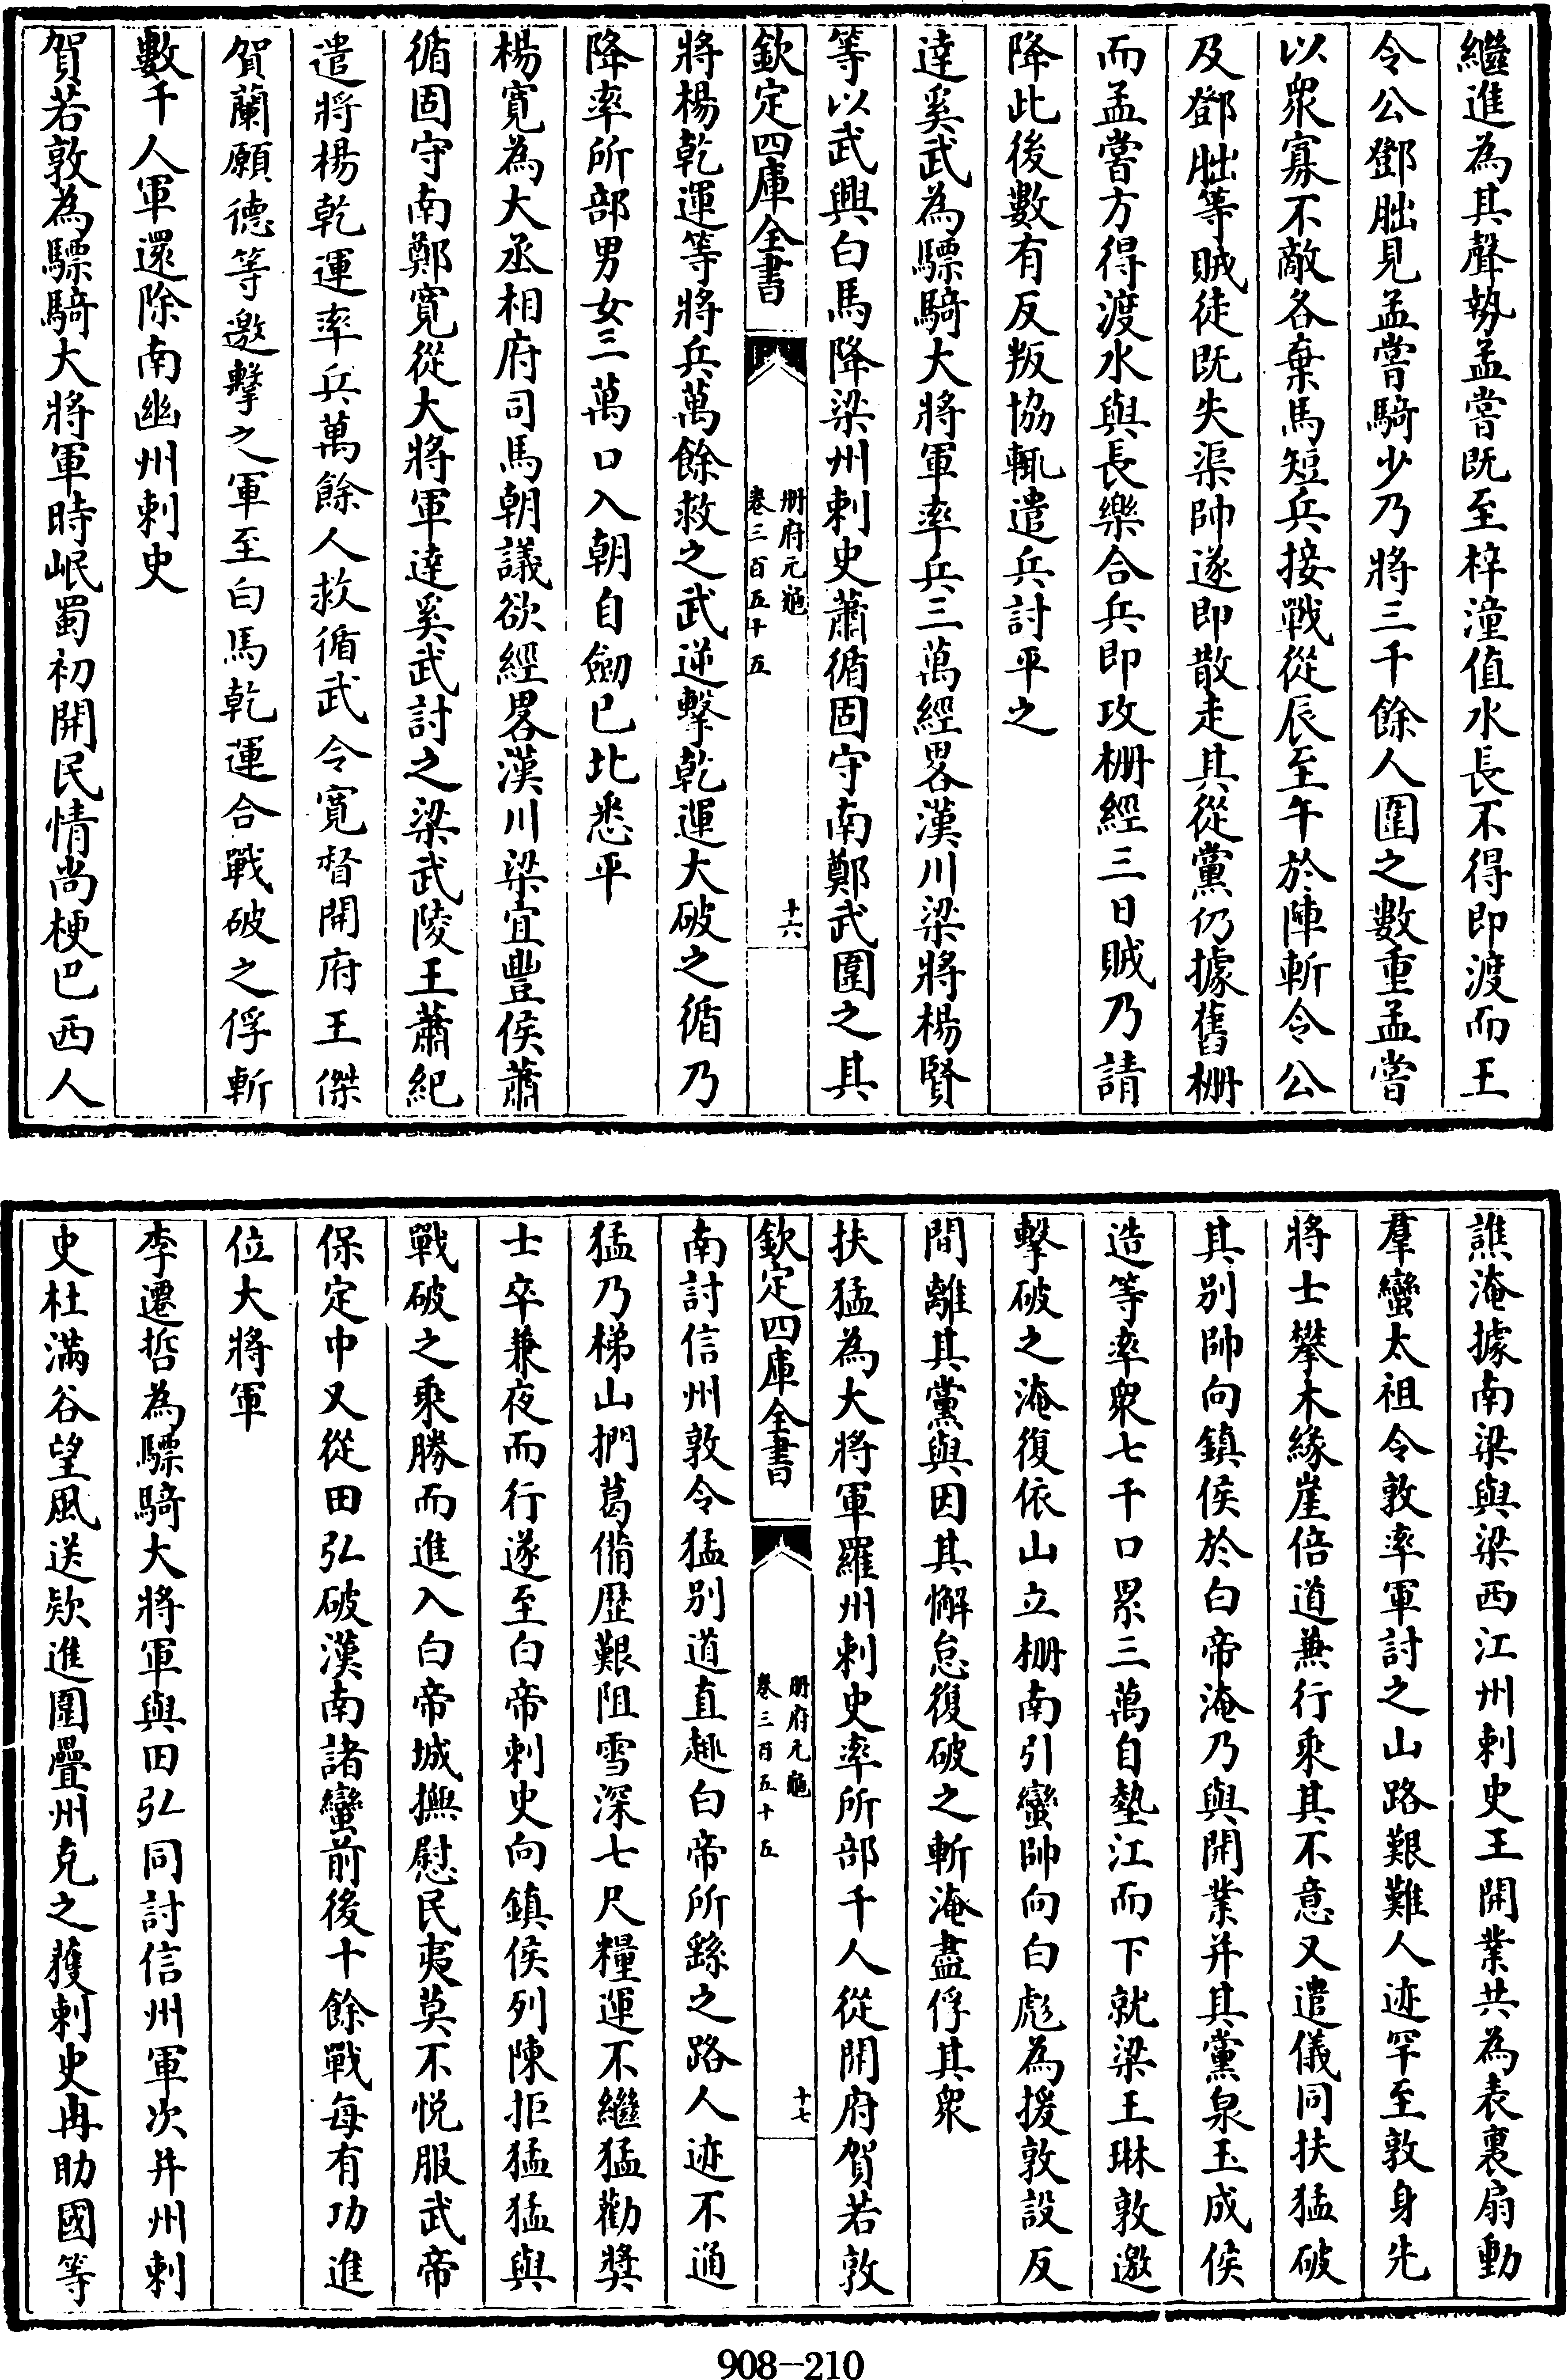 繼進為其聲勢孟嘗既至梓潼值水長不得即渡而王
令公鄧朏見孟嘗騎少乃將三千餘人圍之數重孟嘗
以眾寡不敵各棄馬短兵接戰從辰至午於陣斬令公
及鄧朏等賊徒既失渠帥遂即散走其從黨仍據舊柵
而孟嘗方得渡水與長樂合兵即攻柵經三日賊乃請
降此後數有反叛協輒遣兵討平之
達奚武為驃騎大將軍率兵三萬經畧漢川梁將楊賢
等以武興白馬降梁州刺史蕭循固守南鄭武圍之其
欽定四庫全書
冊府元龜
卷三百五十五
十六
將楊乾運等將兵萬餘救之武逆擊乾運大破之循乃
降率所部男女三萬口入朝自劒已北悉平
楊寬為大丞相府司馬朝議欲經畧漢川梁宜豐侯蕭
循固守南鄭寬從大將軍達奚武討之梁武陵王蕭紀
遣將楊乾運率兵萬餘人救循武令寬督開府王傑
賀蘭願德等邀擊之軍至白馬乾運合戰破之俘斬
數千人軍還除南幽州刺史
賀若敦為驃騎大將軍時岷蜀初開民情尚梗巴西人
譙淹據南梁與梁西江州刺史王開業共為表裏扇動
羣蠻太祖令敦率軍討之山路艱難人迹罕至敦身先
將士攀木緣崖倍道兼行乘其不意又遣儀同扶猛破
其別帥向鎮侯於白帝淹乃與開業并其黨泉玉成侯
造等率眾七千口累三萬自墊江而下就梁王琳敦邀
擊破之淹復依山立柵南引蠻帥向白彪為援敦設反
間離其黨與因其懈怠復破之斬淹盡俘其眾
扶猛為大將軍羅州刺史率所部千人從開府賀若敦
欽定四庫全書
冊府元龜
卷三百五十五
十七
南討信州敦令猛別道直趣白帝所繇之路人迹不通
猛乃梯山捫葛備歷艱阻雪深七尺糧運不繼猛勸獎
士卒兼夜而行遂至白帝刺史向鎮侯列陳拒猛猛與
戰破之乘勝而進入白帝城撫慰民夷莫不悅服武帝
保定中又從田弘破漢南諸蠻前後十餘戰每有功進
位大將軍
李遷哲為驃騎大將軍與田弘同討信州軍次并州刺
史杜滿谷望風送欵進圍疊州克之獲刺史冉助國等
908-210